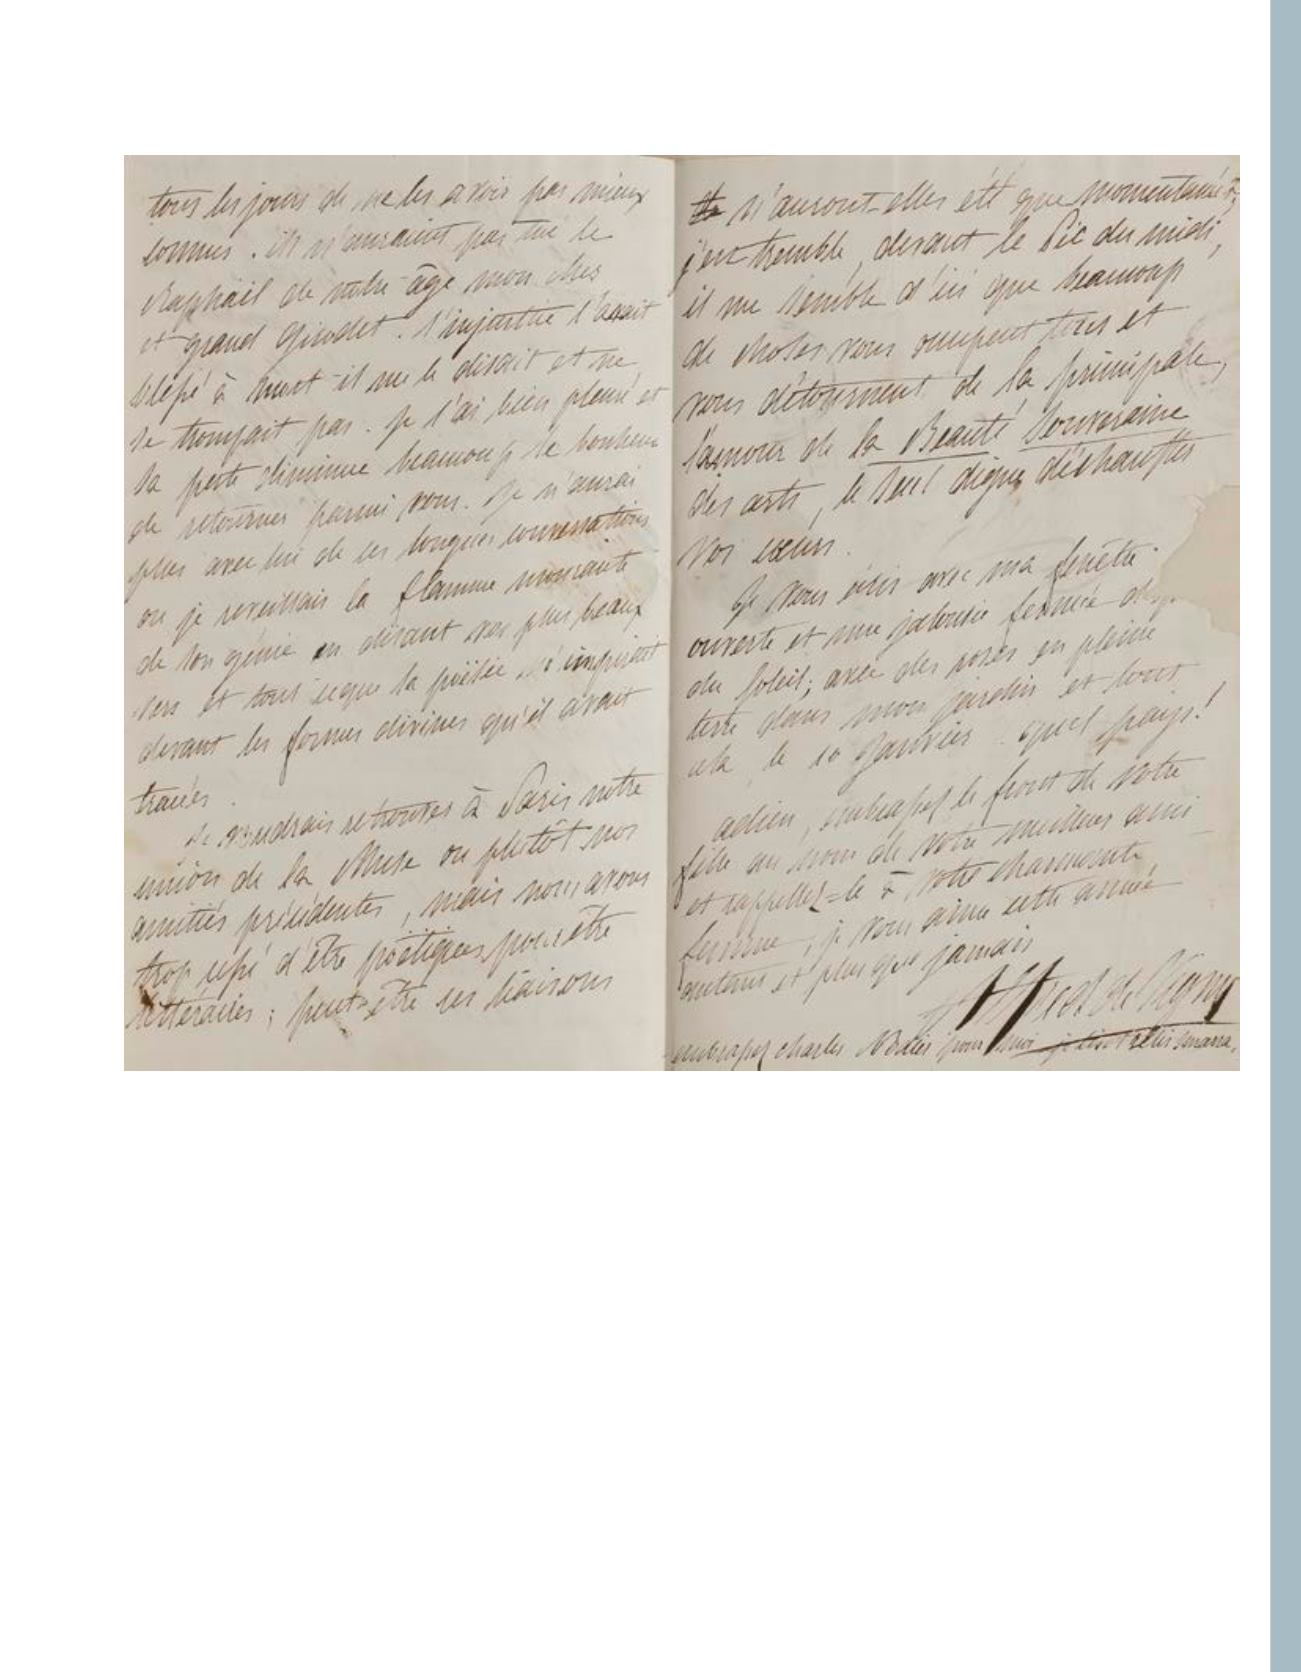 tous les jours de ne les avoir pas mieux
connus. ils n'auraient pas tué le
Raphaël de notre âge mon cher
et grand Girodet. l'injustice l'avait
blessé à mort il me le disait et ne
se trompait pas. Je l'ai bien pleuré et
sa perte diminue beaucoup le bonheur
de retourner parmi vous. Je n'aurai
plus avec lui de ces longues conversations
ou je reveillais la flamme mourante
de son génie en disant vos plus beaux
vers et tout ce que la poësie m'inspirait
devant les formes divines qu'il avait
tracées.
Je voudrais retrouver à Paris notre
union de la Muse ou plutôt nos
amitiés précédentes, mais nous avons
trop cessé d'être poëtiques pour être
littéraires ; peut-être ces liaisons
n'auront-elles été que momentanées,
j'en tremble, devant le Pic du midi,
il me semble d'ici que beaucoup
de choses vous occupent tous et
vous détournent de la principale,
l'amour de la Beauté Souveraine
des arts, le seul digne d'échauffer
vos cœurs.
Je vous écris avec ma fenêtre
ouverte et une jalousie fermée
du Soleil ; avec des roses en pleine
terre dans mon jardin et tout
cela le 10 Janvier. quel pays !
adieu, embrassez le front de votre
fille au nom de votre meilleur ami
et rappellez-le à votre charmante
femme, je vous aime cette année
autant et plus que jamais
Alfred de Vigny
embrassez charles Nodier pour moi je lis et relis Smarra.